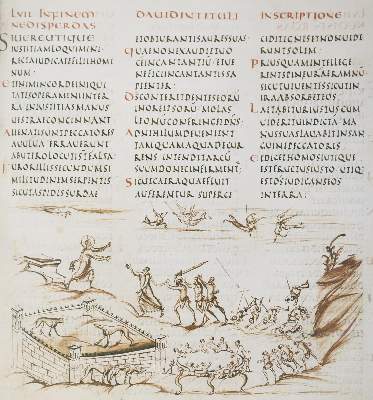 LVII INFINEM
NEDISPERDAS
SIUEREUTIQUE
IUSTITIAMLOQUIMINI
RECTAIUDICATEFILIIHOMI
NUM
ETENIMINCORDEINIQUI
TATESOPERAMINIINTER
RAINIUSTITIASMANUS
UESTRAECONCINNANT
ALIENATISUNTPECCATORES
AUULUAERRAUERUNT
ABUTEROLOCUTISUNTFALSA
FURORILLISSECUNDUMSI
MILITUDINEMSERPENTIS
SICUTASPIDISSURDAE
DAUIDINTITULI
ETOBTURANTISAURESSUAS
QUAENONEXAUDIETUO
CEMINCANTANTIUMETUE
NEFICIINCANTANTISSA
PIENTER
DSCONTERETDENTESEORU
INOREIPSORUMOLAS
LEONUCONFRINGETDNS
ADNIHILUMDEUENIENT
TAMQUAMAQUADECUR
RENSINTENDITARCU
SUUMDONECINFIRMENT
SICUTCERAQUAEFLUIT
AUFERENTURSUPERCE
INSCRIPTIONE
CIDITIGNISETNONUIDE
RUNTSOLEM
PRIUSQUAMINTELLEGE
RENT
SICUTUIUENTESSICUTIN
IRAABSORBETEOS
LAETABITURIUSTUSCUM
UIDERITUINDICTAMA
NUSSUASLAUABITINSAN
GUINEPECCATORIS
ETDICETHOMOSIUTIQUE
ESTFRUCTUSIUSTOUTIQ
ESTDSIUDICANSEOS
INTERRA